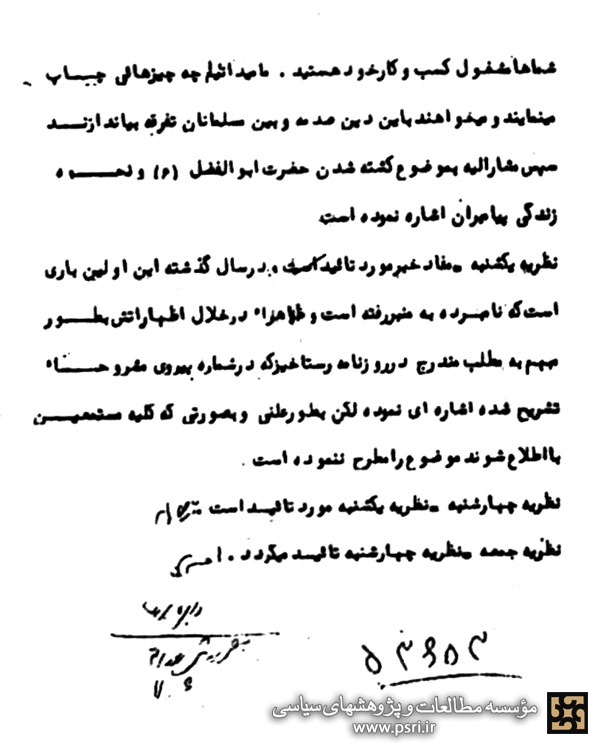 شماها مشغول کسب و کار خود هستید . ما میدانیم چه چیزهائی چـــاپ
مینمایند و میخواهند باین دین صدمه و بین مسلمانان تفرقه بیاندازنـــد
سپس مشارالیه بموضوع کشته شدن حضرت ابوالفضل (ع) و نحـــوه
زندگی پیامبران اشاره نموده است
نظریه یکشنبه ـ مفاد خبر مورد تائید است . در سال گذشته این اولین باری
است که نامبرده به منبر رفته است و ظاهراً در خلال اظهاراتش بطـــور
مبهم به مطلب مندرج در روزنامه رستاخیز که در شماره پیروی مشروحـــاً
تشریح شده اشاره ای نموده لکن بطور علنی و بصورتی که کلیه مستمعیـــن
با اطلاع شوند موضوع را مطرح ننموده است .
نظریه چهارشنبه ـ نظریه یکشنبه مورد تائیـد است
نظریه جمعه ـ نظریه چهارشنبه تائیـد میگردد .
مؤسسه مطالعات و پژوهشهای سیاسی
www.psri.ir